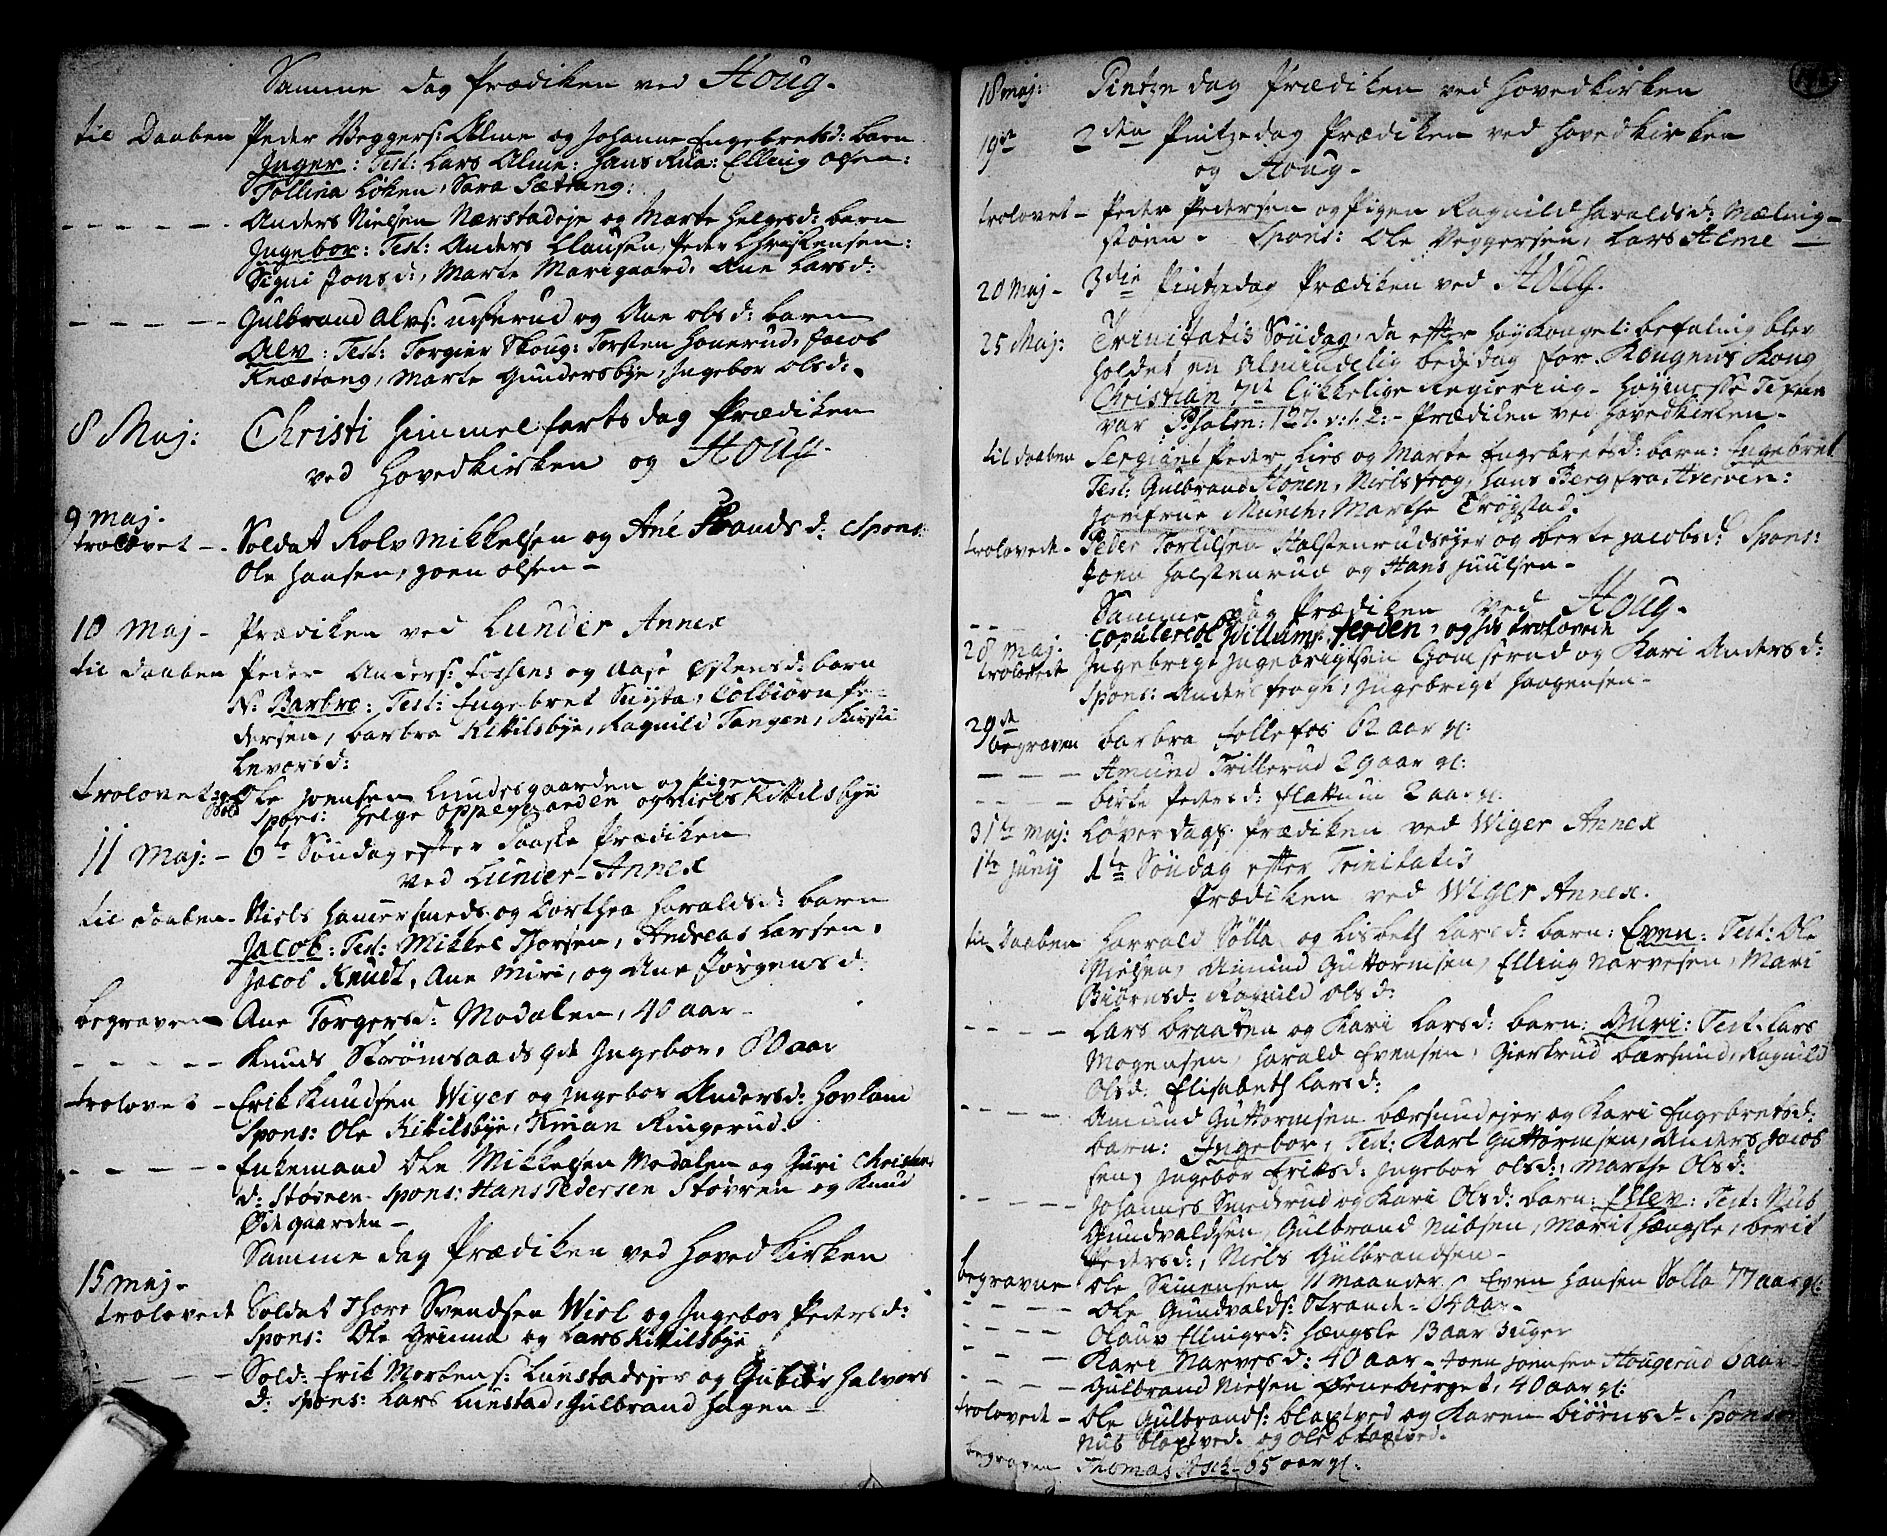 Samme dag Prædiken ved Houg.
til Daaben Peder Veggers: Alme og Johanne Engebretsd: barn
Inger: Test: Lars Alme: Hans Rua: Elling Olsen:
Tollina Løken, Sara Sætrang:
Anders Nielsen Nærstadeje og Marte Helgesd: barn
Ingebor: Test: Anders Clausen, Peder Christensen:
Signi Jonsd:, Marte Morigaard, Ane Larsd:
Gulbrand Alvs: og Ane Olsd: barn
Alv: Test: Torgier Skoug: Torsten Honerud, Jacob
Knæstang, Marte Gundersbye, Ingebor Olsd:
8 Maj: Christi Himmelfarts dag Prædiken
ved Hovedkirken og Houg.
9 maj.
trolovet - Soldat Rolv Mikkelsen og Ane d: Spons:
Ole Hansen, Joen Olsen -
10 Maj - Prædiken ved Lunder Annex
til daaben Peder Anders: og Aase Østensd: barn
N: Barbro: Test: Engebret Snyta, Colbiørn Pe-
dersen, barbra Kittilsbye, Ragnild Tangen, Kirsti
Levorsd:
trolovet: Ole Joensen Lundesgaarden og Pigen
Spons: Helge Oppegaarden og Niels Kittilsbye
11 Maj: - 6te Søndag efter Paaske Prædiken
ved Lunder-Annex
til daaben - Niels Hamersmeds og Dorthea Haraldsd: barn
Jacob: Test: Mikkel Thorsen, Andreas Larsen,
Jacob Knudt, Ane Miri, og Ane Jørgensd:
begraven Ane Torgersd: Modalen, 40 aar -
Knuds Strømsaads Ingebor, 80 aar
trolovet - Erik Knudsen Wiger og Ingebor Andersd: Hovland
Spons: Ole Kittilsbye, Ringerud:
Enkemand Ole Mikkelsen Modalen og Guri Christen
d: Støvren - Spons: Hans Pedersen Støvren og Knud
Ødegaarden -
Samme dag Prædiken ved Hovedkirken
15 maj -
trolovede Soldat Thore Svendsen Wiel og Ingebor Pedersd:
Spons: Ole Grinna og Lars Kittilsbye
Sold: Erik Mortens: Lunstadejer og Halvors
d: Spons: Lars Lunstad, Gulbrand Hagen -
18 maj: Pintze dag Prædiken ved Hovedkirken
19de 2den Pintzedag Prædiken ved Hovedkirken
og Houg -
trolovet - Peder Pedersen og Pigen Ragnild Haraldsd: Mæling-
støen. Spons: Ole Veggersen, Lars Alme -
20 Maj - 3die Pintzedag Prædiken ved Houg.
25 Maj: Trinitatis Søndag, da efter høy Konget: befaling blev
holdet en Almindelig bededag for Kongens Kong
Christian 7de Lykkelige Regiering - Høymesse Texten
var Psalm: 127. v: 1. 2: - Prædiken ved Hovedkirken -
til daaben Sergiant Peder Lies og Marte Engebretsd: barn: Engebret
Test: Gulbrand Hønen, Niels frog, Hans Berg fra Averøen:
Jomfrue Munch, Marthe Trøgstad.
trolovede - Peder Tortilsen Halstenrudsejer og berte Jacobsd: Spons:
Joen Halstenrud og Hans Juulsen -
Samme dag Prædiken ved Houg -
copuleret Ferden, og
28 maj:
trolovede Ingebrigt Ingebrigtsen Gomserud og Kari Andersd:
Spons: Anders frogh, Ingebrigt Haagensen -
29de
begraven barbra follefos 62 aar gl:
Amund Trillerud 29 aar gl:
birte Pedersd: flakum 2 aar gl:
31te maj: Løverdags: Prædiken ved Wiger Annex
1te Junij 1te Søndag efter Trinitatis
Prædiken ved Wiger Annex.
til Daaben Harrald Sølla og Lisbeth Larsd: barn: Even: Test: Ole
Nielsen, Amund Guttormsen, Elling Narvesen, Mari
Biørnsd: Ragnild Olsd:
Lars braaten og Kari Larsd: barn: Guri: Test: Lars
Mogensen, Harald Evensen, Giertrud bærsund, Ragnild
Olsd: Elisabeth Larsd:
Amund Guttormsen bærsundejer og Kari Engebretsd:
barn: Ingebor, Test: Karl Guttormsen, Anders Jacob
sen, Ingebor Eriksd: Ingebor Olsd:, Marthe Olsd:
Johannes Smederud og Kari Olsd: barn: Ellev: Test: Nub
Gundvaldsen, Gulbrand Nubsen, Marit Hængsle, berit
Pedersd:, Niels Gulbrandsen -
begravne Ole Simensen 11 maaneder, Even Hansen Sølla 77 aar gl:
Ole Gundvalds: Strande - 64 aar -
Olauv Ellingsd: Hængsle 13 aar 3 uger
Kari Narvesd: 40 aar - Joen Joensen Hougerud 6 aar
Gulbrand Nielsen Ørnebierget, 40 aar gl:
trolovede - Ole Gulbrands: blaxtved og Karen Biørnsd - Spons:
Nub blaxtved og Ole blaxtved.
begraven Thomas Asch - 65 aar gl: